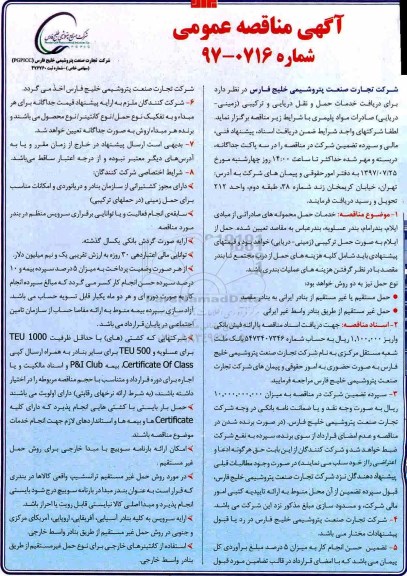 آگهی مناقصه عمومی
شماره ۰۷۱۶-۹۷
شرکت تجارت صنعت پتروشیمی خلیج فارس (PGPICC)
(سهامی خاص) -
شرکت تجارت صنعت پتروشیمی خلیج فارس در نظر دارد
برای دریافت خدمات حمل و نقل دریایی و ترکیبی (زمینی-
دریایی) صادرات مواد پلیمری با شرایط زیر مناقصه برگزار نماید.
لطفا شرکتهای واجد شرایط ضمن دریافت اسناد، پیشنهاد فنی،
مالی و سپرده تضمین شرکت در مناقصه را در سه پاکت جداگانه،
دربسته و مهر شده حداکثر تا ساعت ۱۴:۰۰ روز چهارشنبه مورخ
۱۳۹۷/۰۷/۲۵ به دفتر امور حقوقی و پیمان های شرکت به آدرس:
تهران، خیابان کریمخان زند شماره ۳۸، طبقه دوم، واحد ۲۱۲
تحویل و رسید دریافت فرمایند.
۱- موضوع مناقصه: خدمات حمل محموله های صادراتی از مبادی
ایلام، بندرامام، بندر عسلویه، بندرعباس به مقاصد تعیین شده. حمل از
ایلام به صورت حمل ترکیبی (زمینی - دریایی) خواهد بود و قیمتهای
پیشنهادی باید شامل کلیه هزینه های حمل از درب مجتمع تا بندر
مقصد با در نظر گرفتن هزینه های عملیات بندری باشد.
نوع حمل نیز به دو روش خواهد بود:
حمل مستقیم یا غیر مستقیم از بنادر ایرانی به بنادر مقصد
حمل غیر مستقیم از طریق بنادر واسط غیر ایرانی
۲- اسناد مناقصه: جهت دریافت اسناد مناقصه با ارائه فیش بانکی
واریز ۱,۱۰۰,۰۰۰ ریال به حساب شماره بانک ملت
شعبه مستقل مرکزی به نام شرکت تجارت صنعت پتروشیمی خلیج
فارس به صورت حضوری به امور حقوقی و پیمان های شرکت تجارت
صنعت پتروشیمی خلیج فارس مراجعه فرمایید
۳- سپرده تضمین شرکت در مناقصه به میزان ۱۰,۰۰۰,۰۰۰,۰۰۰
ریال به صورت وجه نقد و یا ضمانت نامه بانکی در وجه شرکت
تجارت صنعت پتروشیمی خلیج فارس. (در صورت برنده شدن در
مناقصه و عدم امضای قرارداد از سوی برنده، سپرده به نفع شرکت
ضبط خواهد شد و شرکت کنندگان از این بابت حق هرگونه ادعا و
اعتراضی را از خود سلب می نمایند) در صورت وجود مطالبات قبلی
پیشنهاد دهندگان نزد شرکت تجارت صنعت پتروشیمی خلیج فارس،
قبول سپرده تضمین از آن محل منوط به ارائه تاییدیه کتبی امور
مالی شرکت، و مسدود سازی مبلغ مذکور نزد این شرکت می باشد.
۴- شرکت تجارت صنعت پتروشیمی خلیج فارس در رد یا قبول
پیشنهادات مختار می باشد.
۵- تضمین حسن انجام کار به میزان ۵ درصد مبلغ برآوردی کل
پیمان می باشد که با امضای قرارداد در قالب تضامین مورد قبول
شرکت تجارت صنعت پتروشیمی خلیج فارس اخذ می گردد.
۶- شرکت کنندگان ملزم به ارایه پیشنهاد قیمت جداگانه برای هر
مبداء و به تفکیک نوع حمل/نوع کانتینر/ نوع محصول می باشند و
برنده هر مبداء/روش به صورت جداگانه تعیین خواهد شد.
۷- بدیهی است ارسال پیشنهاد در خارج از زمان مقرر و یا به
آدرس های دیگر معتبر نبوده و از درجه اعتبار ساقط می باشد.
۸- شرایط اختصاصی شرکت کنندگان:
دارای مجوز کشتیرانی از سازمان بنادر و دریانوردی و امکانات مناسب
برای حمل زمینی (در حملهای ترکیبی)
سابقه ی انجام فعالیت و یا توانایی برقراری سرویس منظم در بندر
مورد مناقصه
ارایه صورت گردش بانکی یکسال گذشته.
توانایی مالی اعتباردهی ۳۰ روزه به ارزش تقریبی یک و نیم میلیون دلار.
از هر صورت وضعیت پرداخت به میزان ۵ درصد سپرده بیمه و ۱۰
درصد سپرده حسن انجام کار کسر می گردد که مبالغ سپرده انجام
کار به صورت دوره ای و هر دو ماه یکبار قابل تسویه حساب می باشد.
آزاد سازی سپرده بیمه منوط به ارائه مفاصا حساب از سازمان تامین
اجتماعی در پایان قرارداد می باشد.
شرکتهایی که کشتی (های) با حداقل ظرفیت TEU 1000
برای عسلویه و TEU 500 برای سایر بنادر به همراه ارسال کپی
Certificate Of Class، بیمه P&I Club و اسناد مالکیت و یا
اجاره برای دوره قرارداد و متناسب با حجم مناقصه مربوطه را در اختیار
داشته باشند، (به شرط ارائه نرخهای رقابتی) دارای اولویت می باشند
حمل بار بایستی با کشتی هایی انجام پذیرد که دارای کلیه
Certificate ها و بیمه ها و استانداردهای لازم جهت انجام خدمات
موضوع مناقصه باشند.
امکان ارائه بارنامه سوییچ با مبدا خارجی برای روش حمل
غیر مستقیم.
در مورد روش حمل غیر مستقیم ترانسشیپ واقعی کالاها در بندری
که قرار است به عنوان بندر مبدا در بارنامه سوییچ درج شود بایستی
انجام پذیرد و مبدا اصلی کالا نبایستی قابل رویت یا احراز باشد.
ارایه سرویس به کلیه بنادر آسیایی، آفریقایی، اروپایی، آمریکای مرکزی
و جنوبی در روش حمل غیر مستقیم از طریق بنادر واسط خارجی.
استفاده از کانتینرهای خارجی برای نوع حمل غیر مستقیم از طریق
بنادر واسط خارجی.